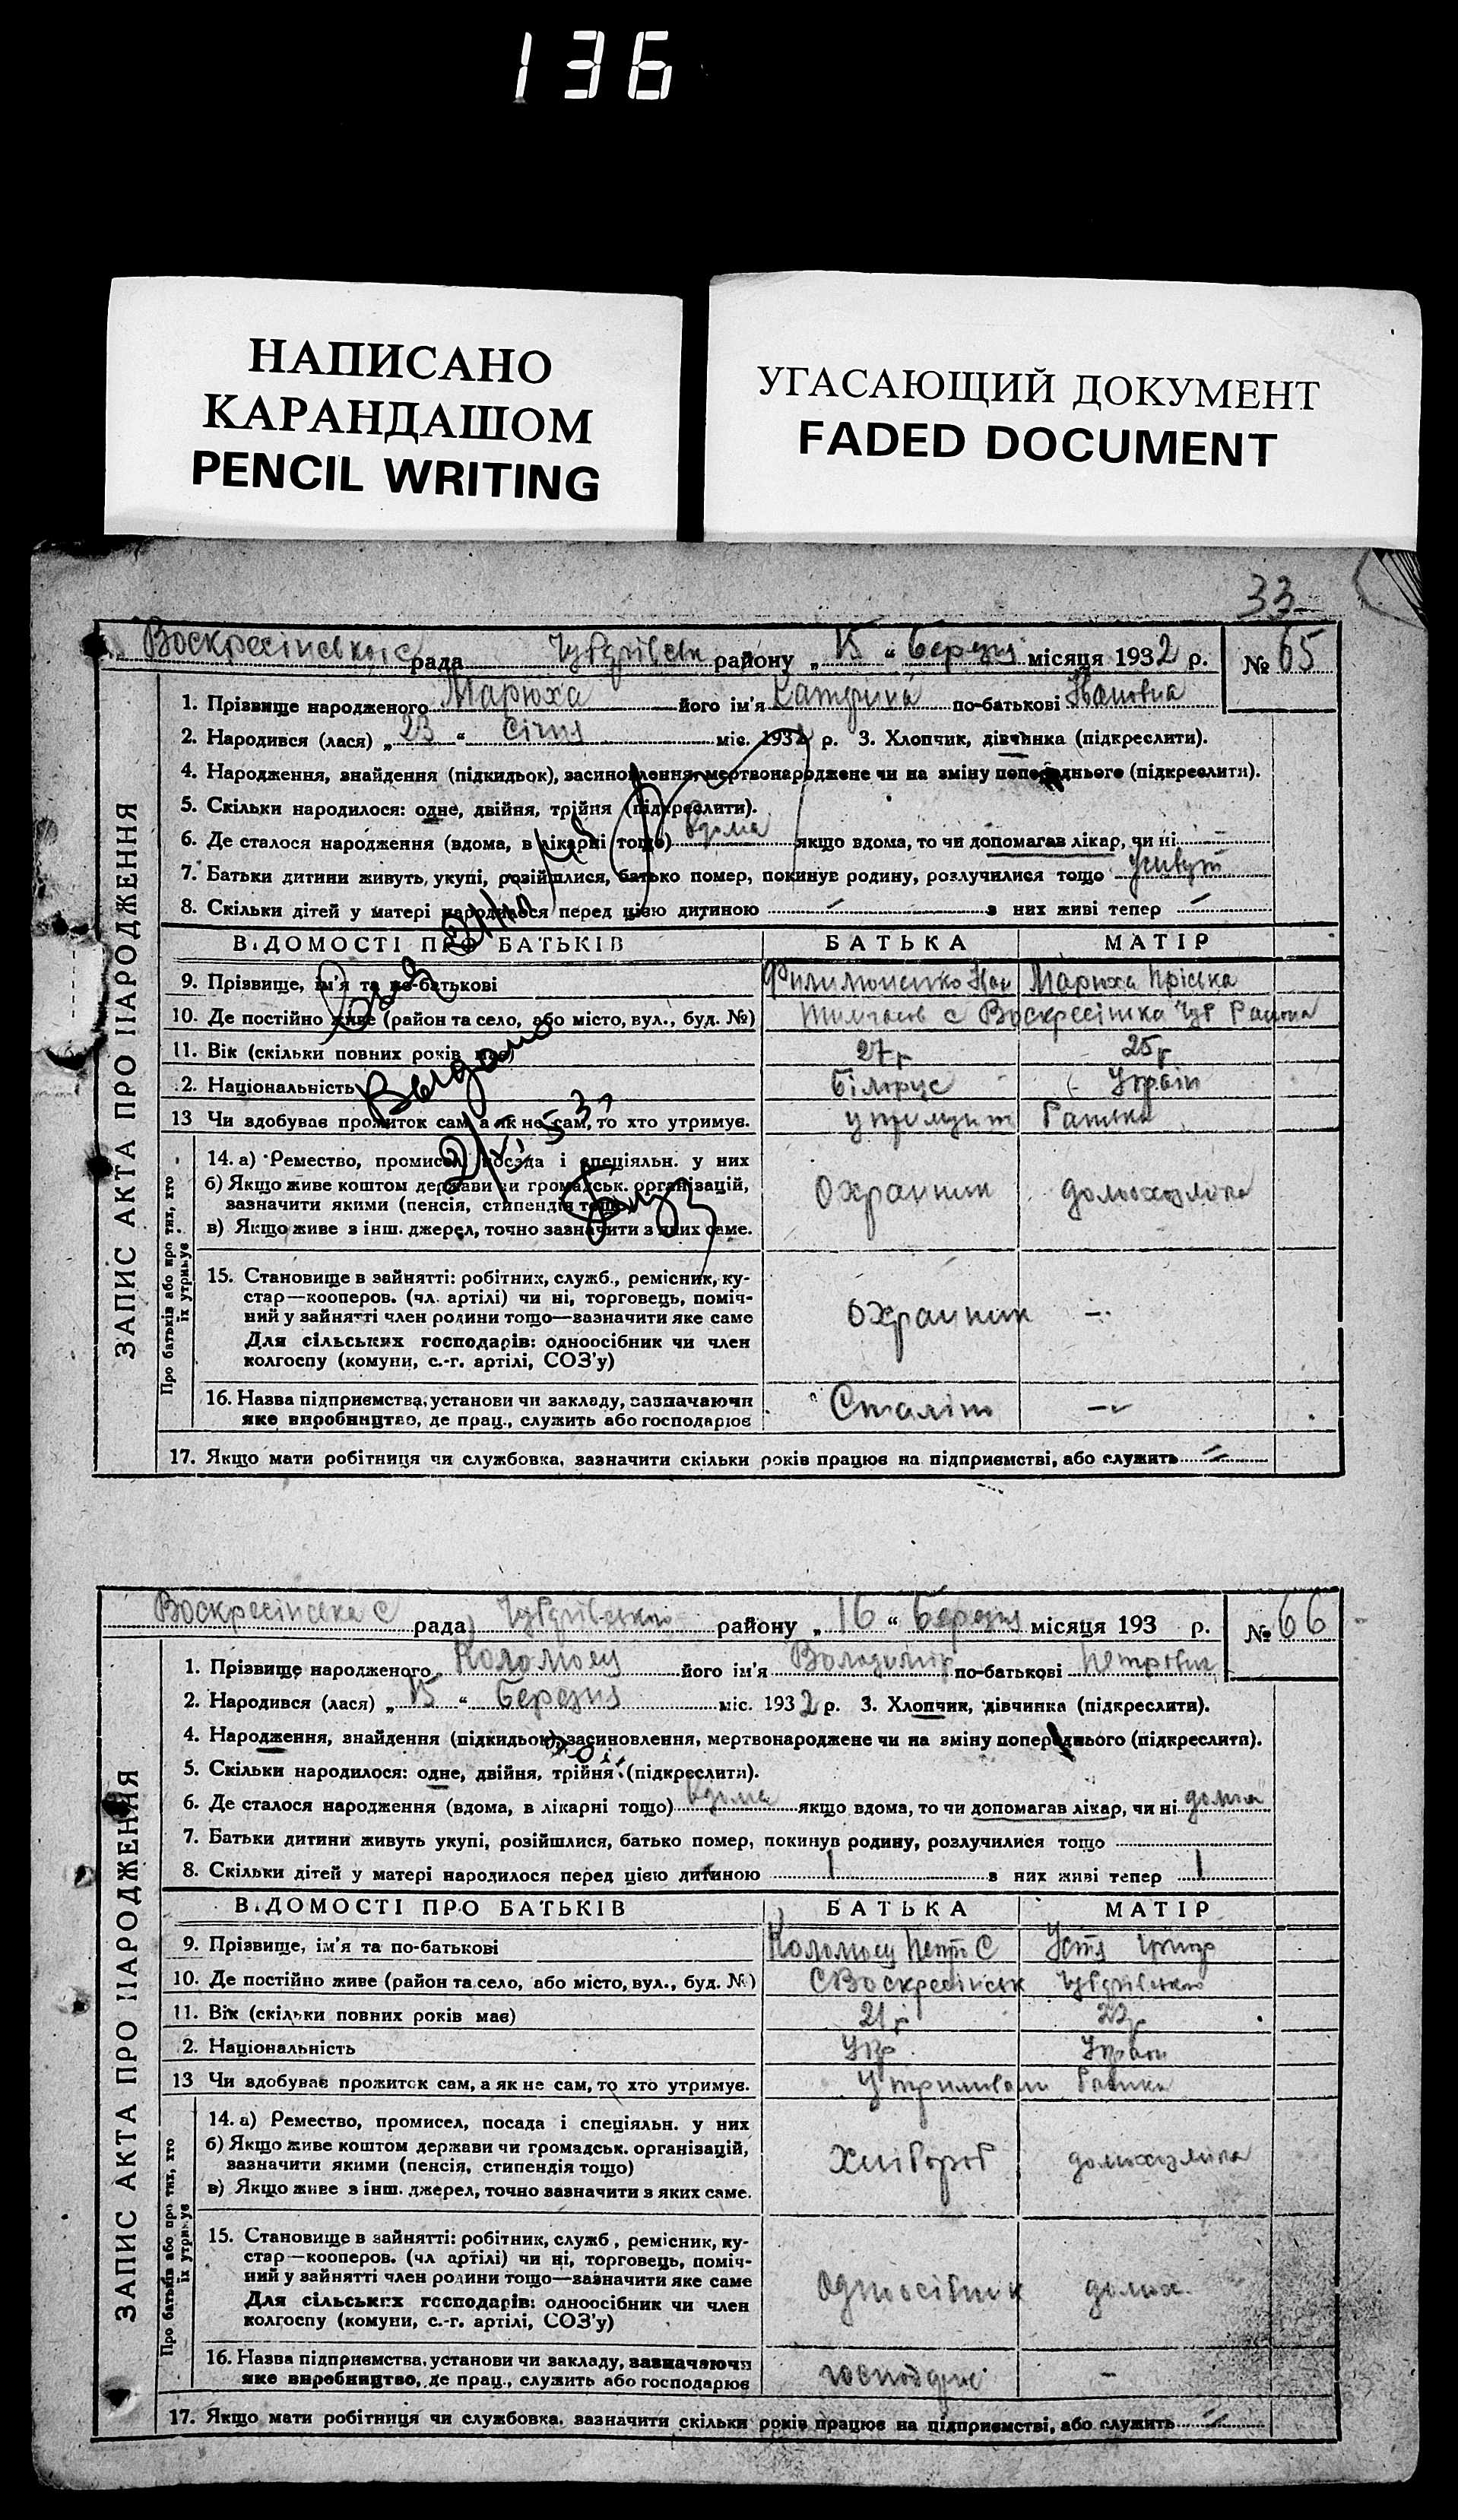 136
НАПИСАНО
КАРАНДАШОМ
PENCIL WRITING
УГАСАЮЩИЙ ДОКУМЕНТ
FADED DOCUMENT
33
ЗАПИС АКТА ПРО НАРОДЖЕННЯ
рада району „ 15 “ березня місяця 1932 р. № 65
1. Прізвище народженого Марюха його ім'я Катерина по-батькові Івановна
2. Народився (лася) „ 23 “ Січня міс. 1932 р. 3. Хлопчик, дівчинка (підкреслити).
4. Народження, знайдення (підкидьок), засиновлення, мертвонароджене чи на зміну попереднього (підкреслити).
5. Скільки народилося: одне, двійня, трійня (підкреслити).
6. Де сталося народження (вдома, в лікарні тощо) вдома якщо вдома, то чи допомагав лікар, чи ні
7. Батьки дитини живуть, укупі, розійшлися, батько помер, покинув родину, розлучилися тощо
8. Скільки дітей у матері народилося перед цією дитиною – з них живі тепер –
ВІДОМОСТІ ПРО БАТЬКІВ БАТЬКА МАТІР
9. Прізвище, ім'я та по-батькові Филимоненко Іван Марюха Пріська
10. Де постійно живе (район та село, або місто, вул., буд. №) с Воскресінка
11. Вік (скільки повних років має) 27 р 25 р
2. Національність Білорус Україн
13 Чи здобуває прожиток сам, а як не сам, то хто утримує.
Про батьків або про тих, хто їх утримує
14. а) Ремество, промисел, посада і спеціяльн. у них
б) Якщо живе коштом держави чи громадськ. організацій,
зазначити якими (пенсія, стипендія тощо)
в) Якщо живе з інш. джерел, точно зазначити з яких саме.
Охранник домохозяйка
15. Становище в зайнятті: робітник, служб., ремісник, ку-
стар—кооперов. (чл. артілі) чи ні, торговець, поміч-
ний у зайнятті член родини тощо—зазначити яке саме
Для сільських господарів: одноосібник чи член
колгоспу (комуни, с.-г. артілі, СОЗ'у)
охранник –
16. Назва підприємства, установи чи закладу, зазначаючи
яке виробництво, де прац., служить або господарює
–
17. Якщо мати робітниця чи службовка, зазначити скільки років працює на підприємстві, або служить
Выдано
ЗАПИС АКТА ПРО НАРОДЖЕННЯ
Воскресінська с рада району „ 16 “ березня місяця 193 р. № 66
1. Прізвище народженого Коломоєц його ім'я Володимір по-батькові Петрович
2. Народився (лася) „ 15 “ березня міс. 1932 р. 3. Хлопчик, дівчинка (підкреслити).
4. Народження, знайдення (підкидьок), засиновлення, мертвонароджене чи на зміну попереднього (підкреслити).
5. Скільки народилося: одне, двійня, трійня (підкреслити).
6. Де сталося народження (вдома, в лікарні тощо) вдома якщо вдома, то чи допомагав лікар, чи ні дома
7. Батьки дитини живуть укупі, розійшлися, батько помер, покинув родину, розлучилися тощо
8. Скільки дітей у матері народилося перед цією дитиною 1 з них живі тепер 1
ВІДОМОСТІ ПРО БАТЬКІВ БАТЬКА МАТІР
9. Прізвище, ім'я та по-батькові Коломоєц Петро С Устя Григор
10. Де постійно живе (район та село, або місто, вул., буд. №) С Воскресінськ
11. Вік (скільки повних років має) 21 р 22 р
2. Національність Укр Україн
13 Чи здобуває прожиток сам, а як не сам, то хто утримує.
Про батьків або про тих, хто їх утримує
14. а) Ремество, промисел, посада і спеціяльн. у них
б) Якщо живе коштом держави чи громадськ. організацій,
зазначити якими (пенсія, стипендія тощо)
в) Якщо живе з інш. джерел, точно зазначити з яких саме.
Хлібороб домохозяйка
15. Становище в зайнятті: робітник, служб., ремісник, ку-
стар—кооперов. (чл артілі) чи ні, торговець, поміч-
ний у зайнятті член родини тощо—зазначити яке саме
Для сільських господарів: одноосібник чи член
колгоспу (комуни, с.-г. артілі, СОЗ'у)
Одноосібник домох.
16. Назва підприємства, установи чи закладу, зазначаючи
яке виробництво, де прац., служить або господарює
–
17. Якщо мати робітниця чи службовка, зазначити скільки років працює на підприємстві, або служить